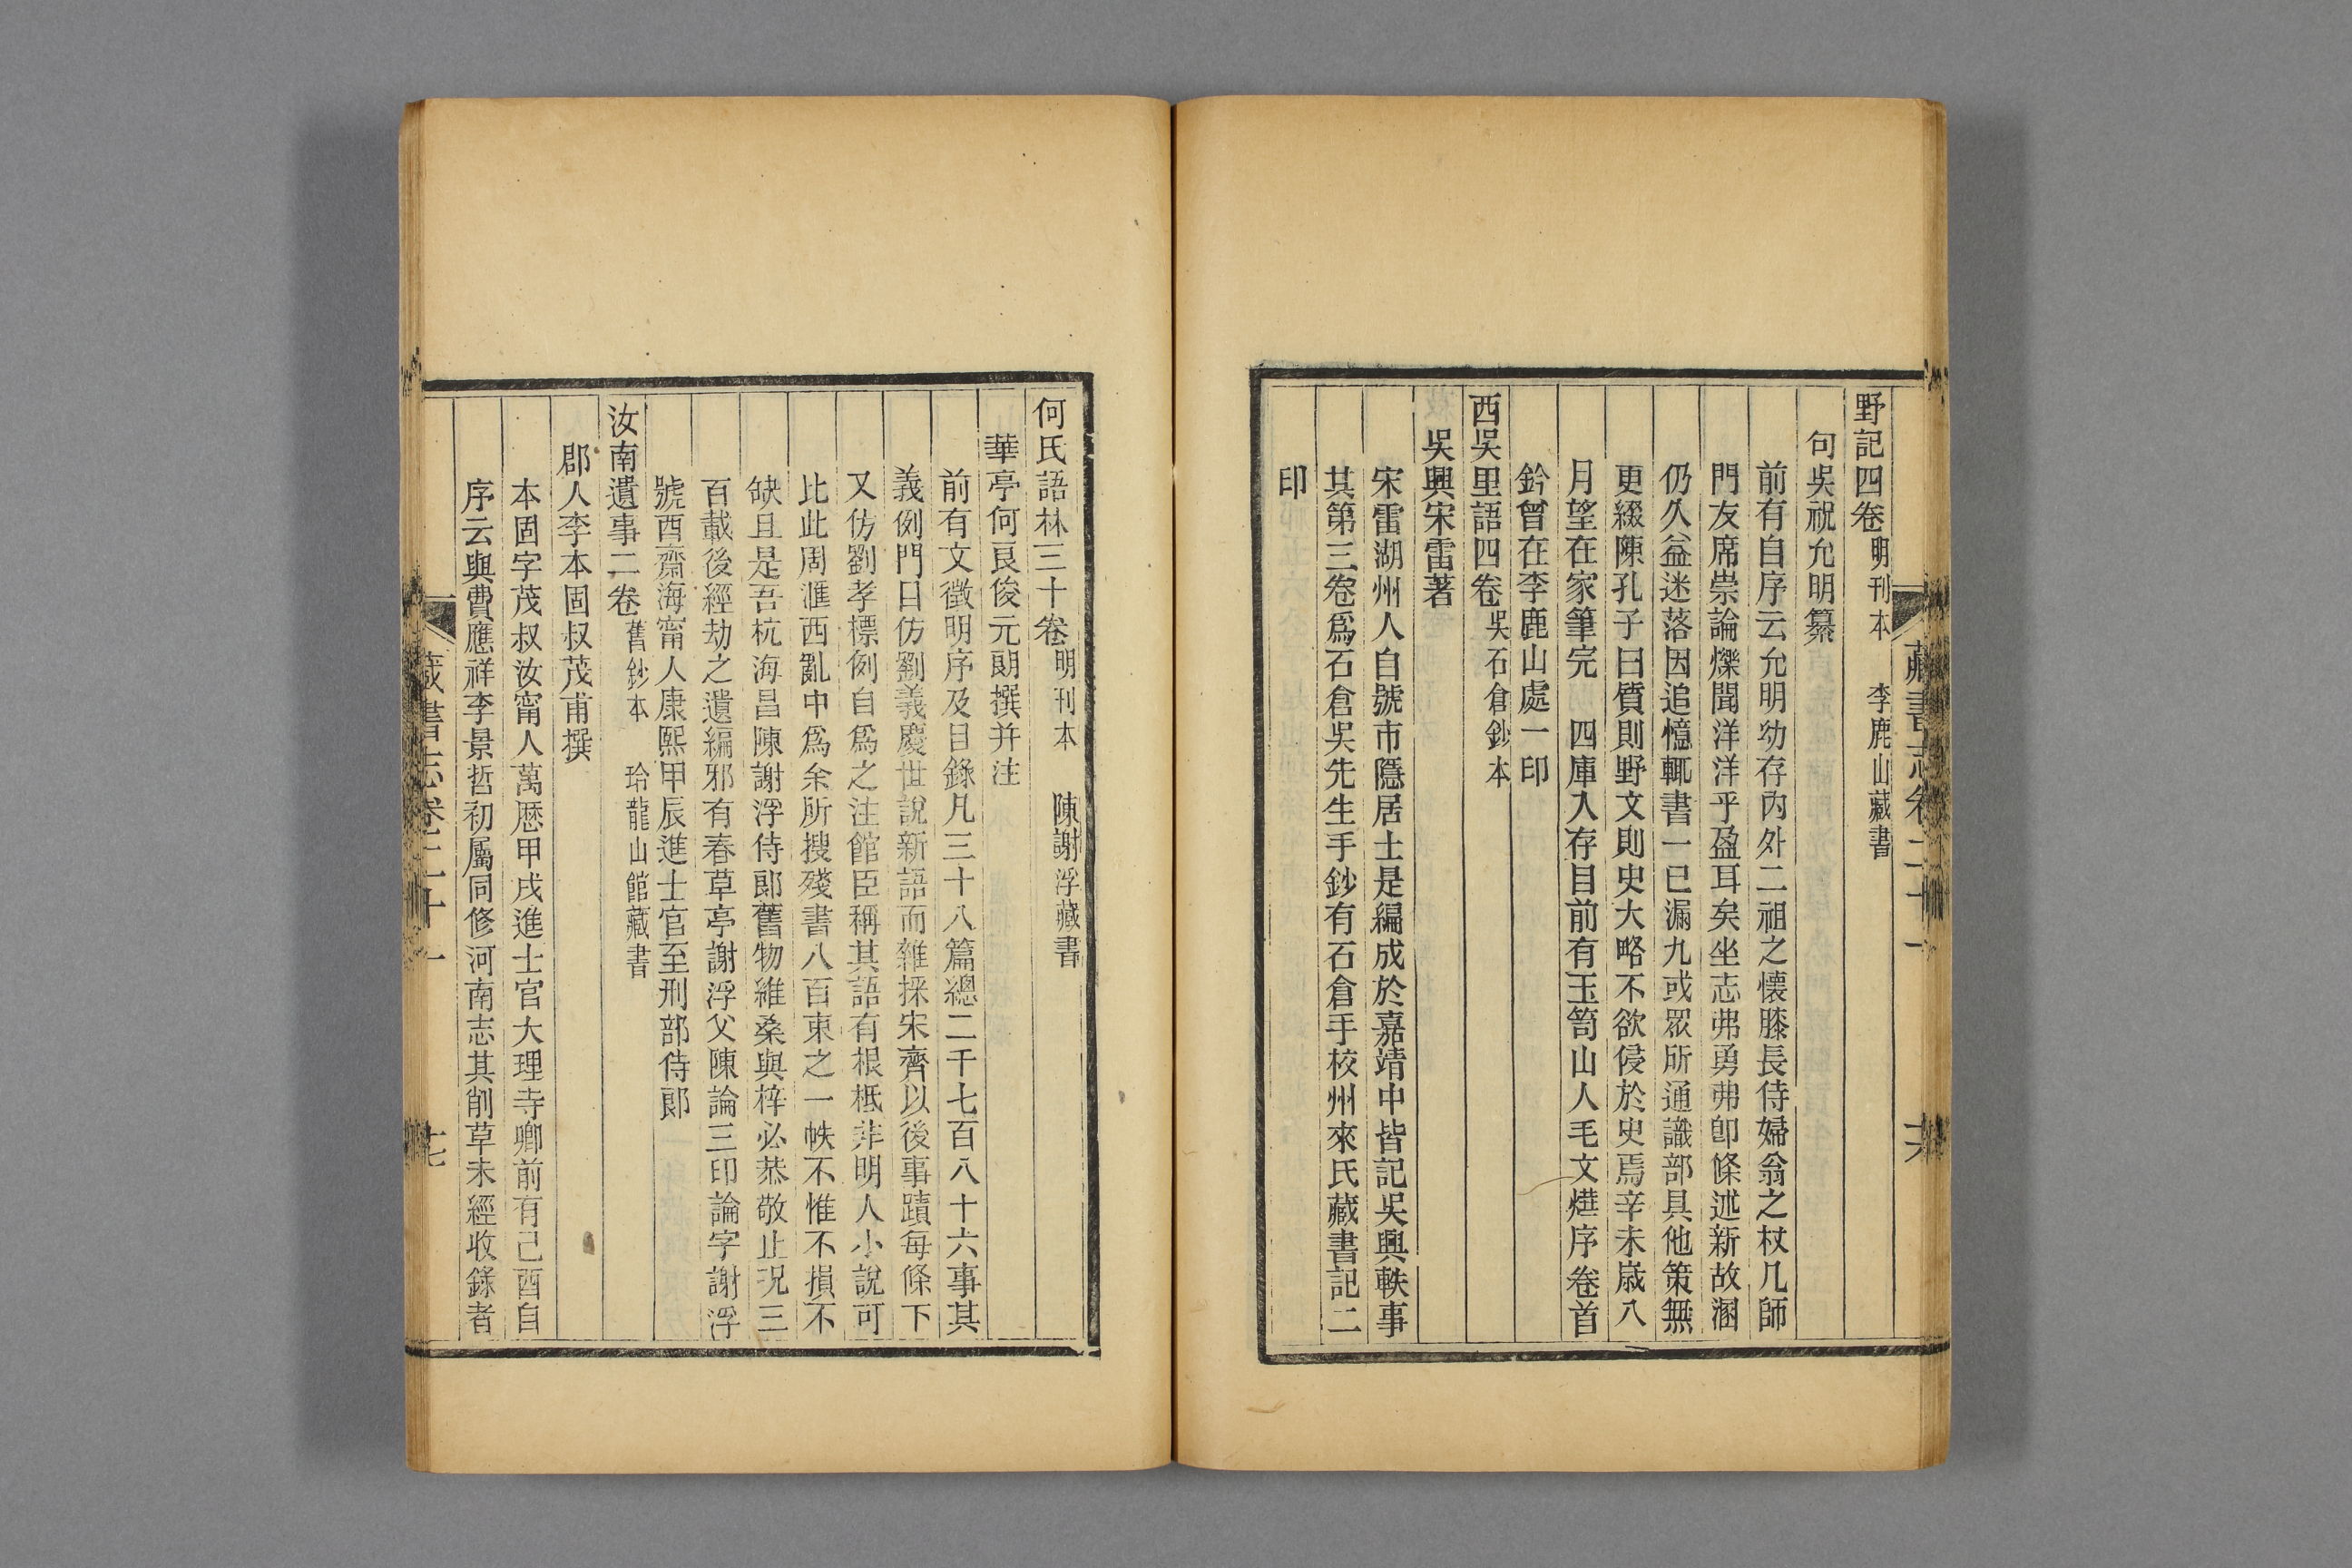 野記四卷 明刊本 李鹿山藏書
句吳祝允明纂
前有自序云允明幼存內外二祖之懷膝長侍婦翁之杖几師
門友席崇論爍聞洋洋乎盈耳矣坐志弗勇弗卽條述新故溷
仍久益迷落因追憶輒書一已漏九或眾所通識部具他策無
更綴陳孔子曰質則野文則史大略不欲侵於史焉辛未歲八
月望在家筆完 四庫入存目前有玉笥山人毛文燁序卷首
鈐曾在李鹿山處一印
西吳里語四卷 吳石倉鈔本
吳興宋雷著
宋雷湖州人自號市隱居士是編成於嘉靖中皆記吳興軼事
其第三卷爲石倉吳先生手鈔有石倉手校州來氏藏書記二
印
藏書志卷二十一 十六
何氏語林三十卷 明刊本 陳謝浮藏書
華亭何良俊元朗撰并注
前有文徵明序及目錄凡三十八篇總二千七百八十六事其
義例門目仿劉義慶世說新語而雜採宋齊以後事蹟每條下
又仿劉孝標例自爲之注館臣稱其語有根柢非明人小說可
比此周滙西亂中爲余所搜殘書八百束之一帙不惟不損不
缺且是吾杭海昌陳謝浮侍郎舊物維桑與梓必恭敬止況三
百載後經劫之遺編邪有春草亭謝浮父陳論三印論字謝浮
號酉齋海甯人康熙甲辰進士官至刑部侍郎
汝南遺事二卷 舊鈔本 玲龍山館藏書
郡人李本固叔茂甫撰
本固字茂叔汝甯人萬厯甲戌進士官大理寺卿前有己酉自
序云與費應祥李景哲初屬同修河南志其削草未經收錄者
藏書志卷二十一 十七